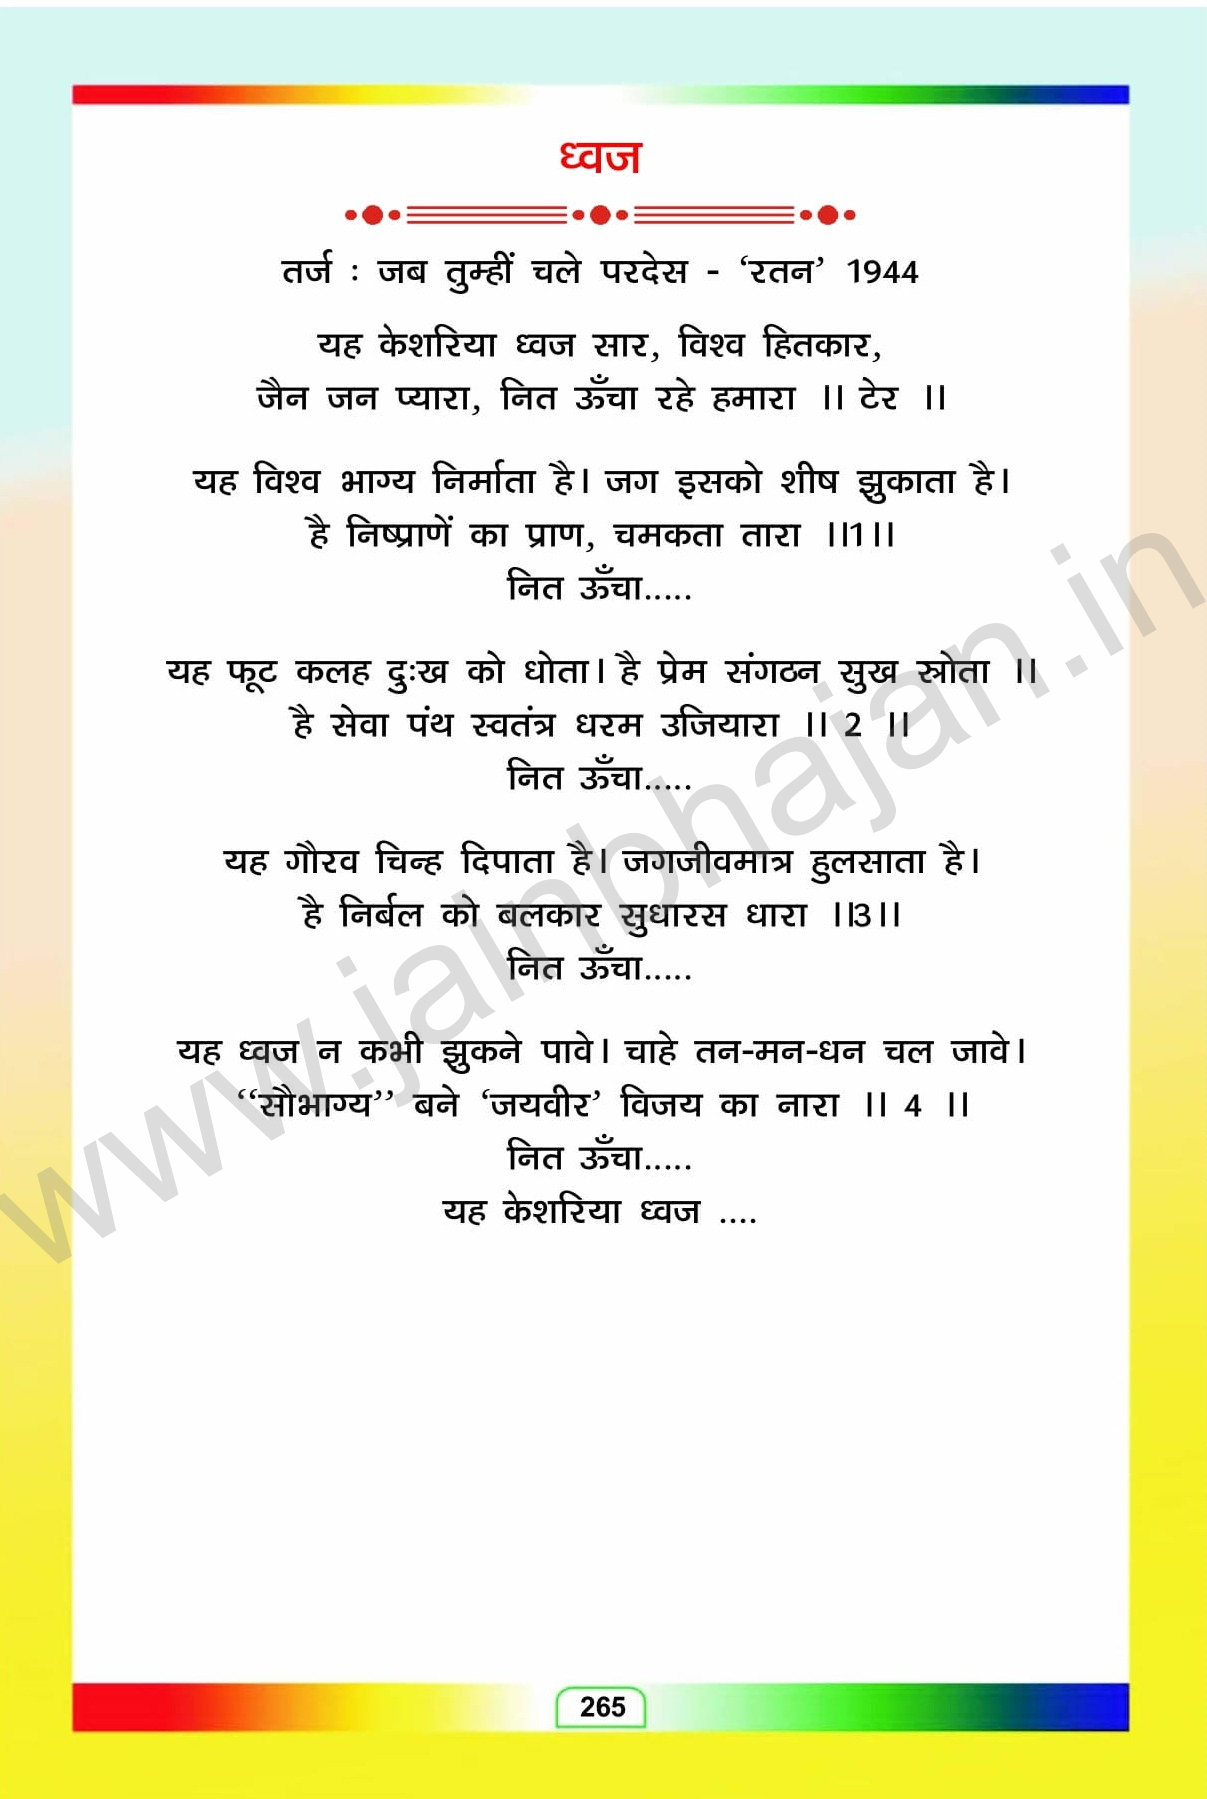 ध्वज
तर्ज : जब तुम्हीं चले परदेस - ‘रतन’ 1944
यह केशरिया ध्वज सार, विश्व हितकार,
जैन जन प्यारा, नित ऊँचा रहे हमारा ।। टेर ।।
यह विश्व भाग्य निर्माता है। जग इसको शीष झुकाता है।
है निष्प्राणें का प्राण, चमकता तारा ।।1।।
नित ऊँचा.....
यह फूट कलह दुःख को धोता। है प्रेम संगठन सुख स्त्रोता ।।
है सेवा पंथ स्वतंत्र धरम उजियारा ।। 2 ।।
नित ऊँचा.....
यह गौरव चिन्ह दिपाता है। जगजीवमात्र हुलसाता है।
है निर्बल को बलकार सुधारस धारा ।।3।।
नित ऊँचा.....
यह ध्वज न कभी झुकने पावे। चाहे तन-मन-धन चल जावे।
‘‘सौभाग्य’’ बने ‘जयवीर’ विजय का नारा ।। 4 ।।
नित ऊँचा.....
यह केशरिया ध्वज ....
www.jainbhajan.in
265